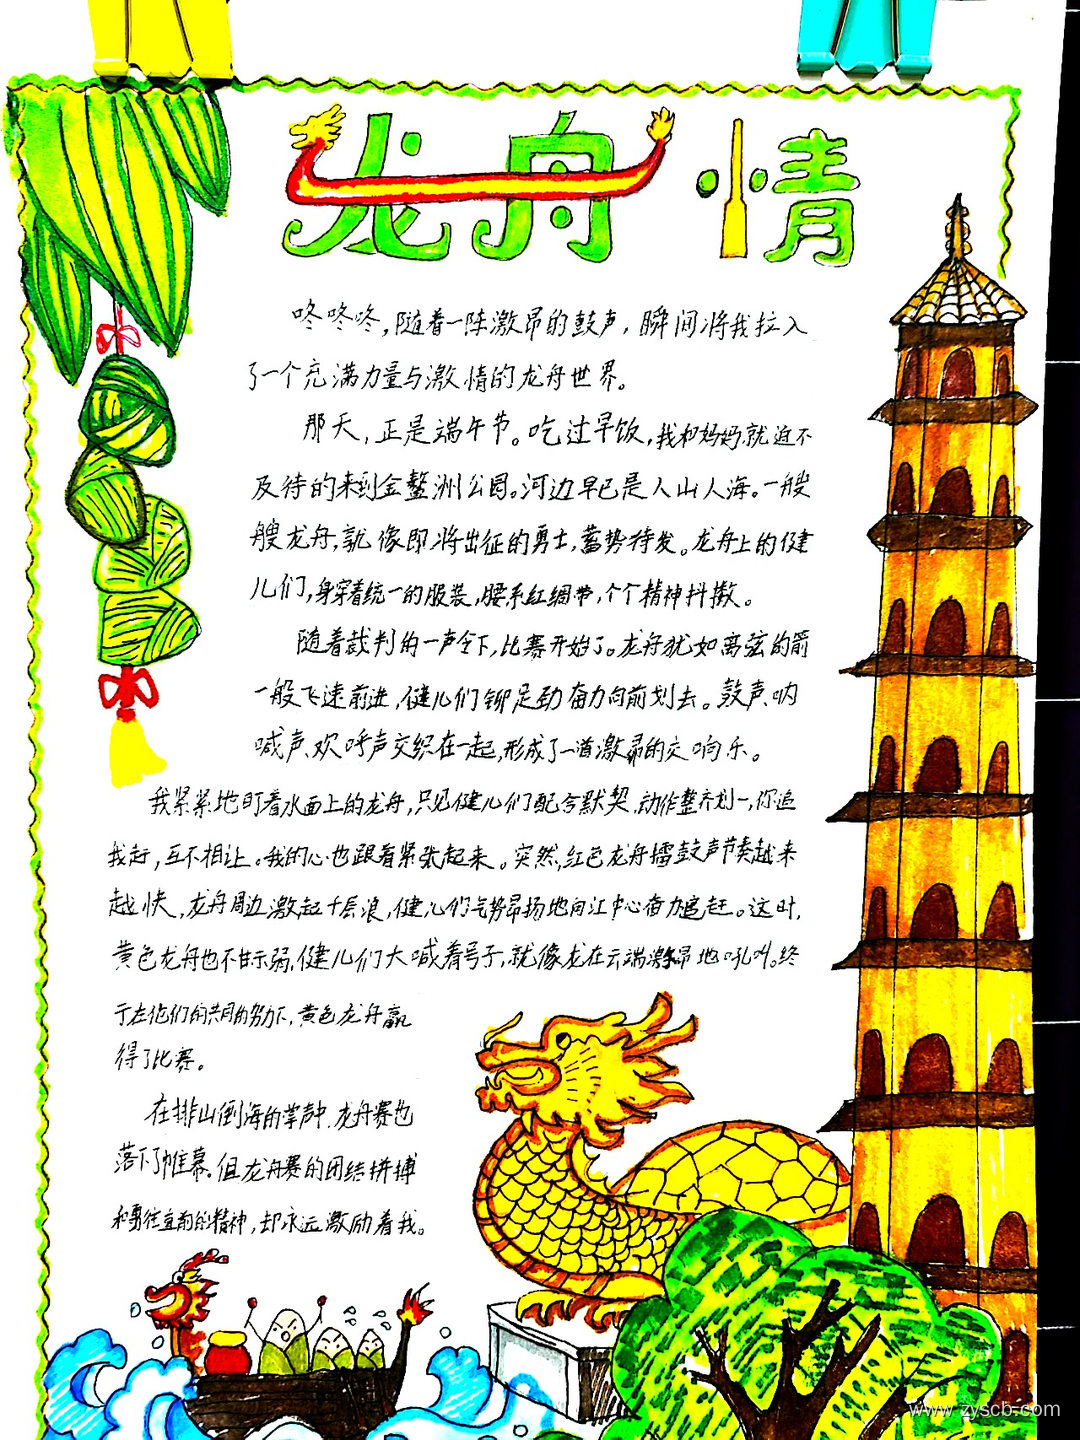 龙舟情
咚咚咚，随着一阵激昂的鼓声，瞬间将我拉入
了一个充满力量与激情的龙舟世界。
那天，正是端午节。吃过早饭，我和妈妈就迫不
及待的来到金鳌洲公园。河边早已是人山人海。一艘
艘龙舟，就像即将出征的勇士，蓄势待发。龙舟上的健
儿们，身穿着统一的服装，腰系红绸带，个个精神抖擞。
随着裁判的一声令下，比赛开始了。龙舟犹如离弦的箭
一般飞速前进，健儿们铆足劲奋力向前划去。鼓声、呐
喊声、欢呼声交织在一起，形成了一首激昂的交响乐。
我紧紧地盯着水面上的龙舟，只见健儿们配合默契，动作整齐划一，你追
我赶，互不相让。我的心也跟着紧张起来。突然，红色龙舟擂鼓声节奏越来
越快，龙舟周边激起千层浪，健儿们气势昂扬地向江中心奋力追赶。这时，
黄色龙舟也不甘示弱，健儿们大喊着号子，就像龙在云端激昂地吼叫。终
于在他们的共同的努力下，黄色龙舟赢
得了比赛。
在排山倒海的掌声中，龙舟赛也
落下了帷幕。但龙舟赛的团结拼搏
和勇往直前的精神，却永远激励着我。
www.zyscb.com